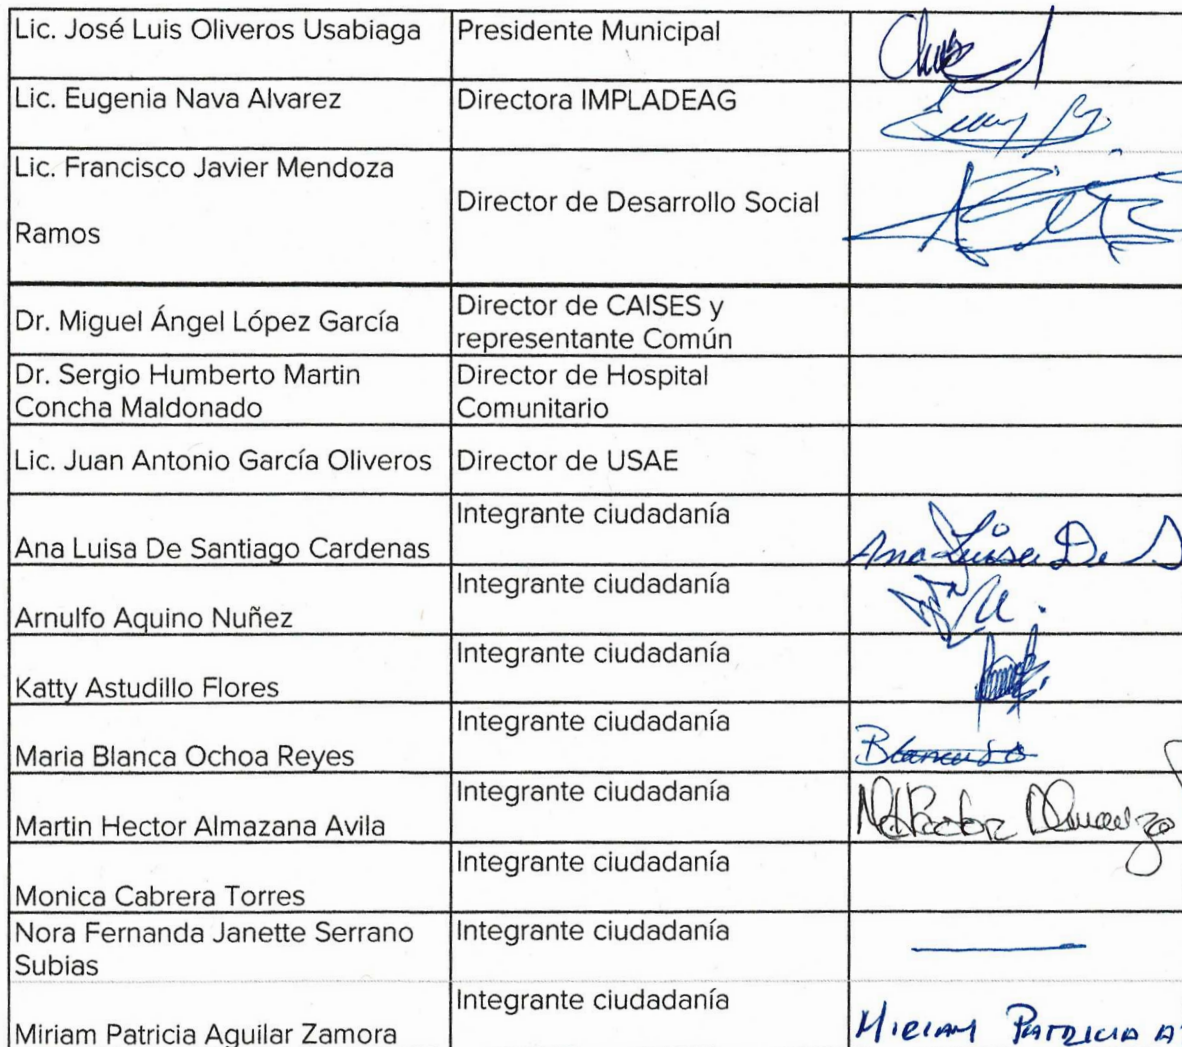 Lic. José Luis Oliveros Usabiaga Presidente Municipal
Lic. Eugenia Nava Alvarez Directora IMPLADEAG
Lic. Francisco Javier Mendoza
Ramos
Director de Desarrollo Social
Dr. Miguel Ángel López García
Director de CAISES y
representante Común
Dr. Sergio Humberto Martin
Concha Maldonado
Director de Hospital
Comunitario
Lic. Juan Antonio García Oliveros Director de USAE
Ana Luisa De Santiago Cardenas
Integrante ciudadanía
Ana Luisa De S
Arnulfo Aquino Nuñez
Integrante ciudadanía
Katty Astudillo Flores
Integrante ciudadanía
Maria Blanca Ochoa Reyes
Integrante ciudadanía
Martin Hector Almazana Avila
Integrante ciudadanía
Monica Cabrera Torres
Integrante ciudadanía
Nora Fernanda Janette Serrano
Subias
Integrante ciudadanía
Miriam Patricia Aguilar Zamora
Integrante ciudadanía
MIRIAM PATRICIA A